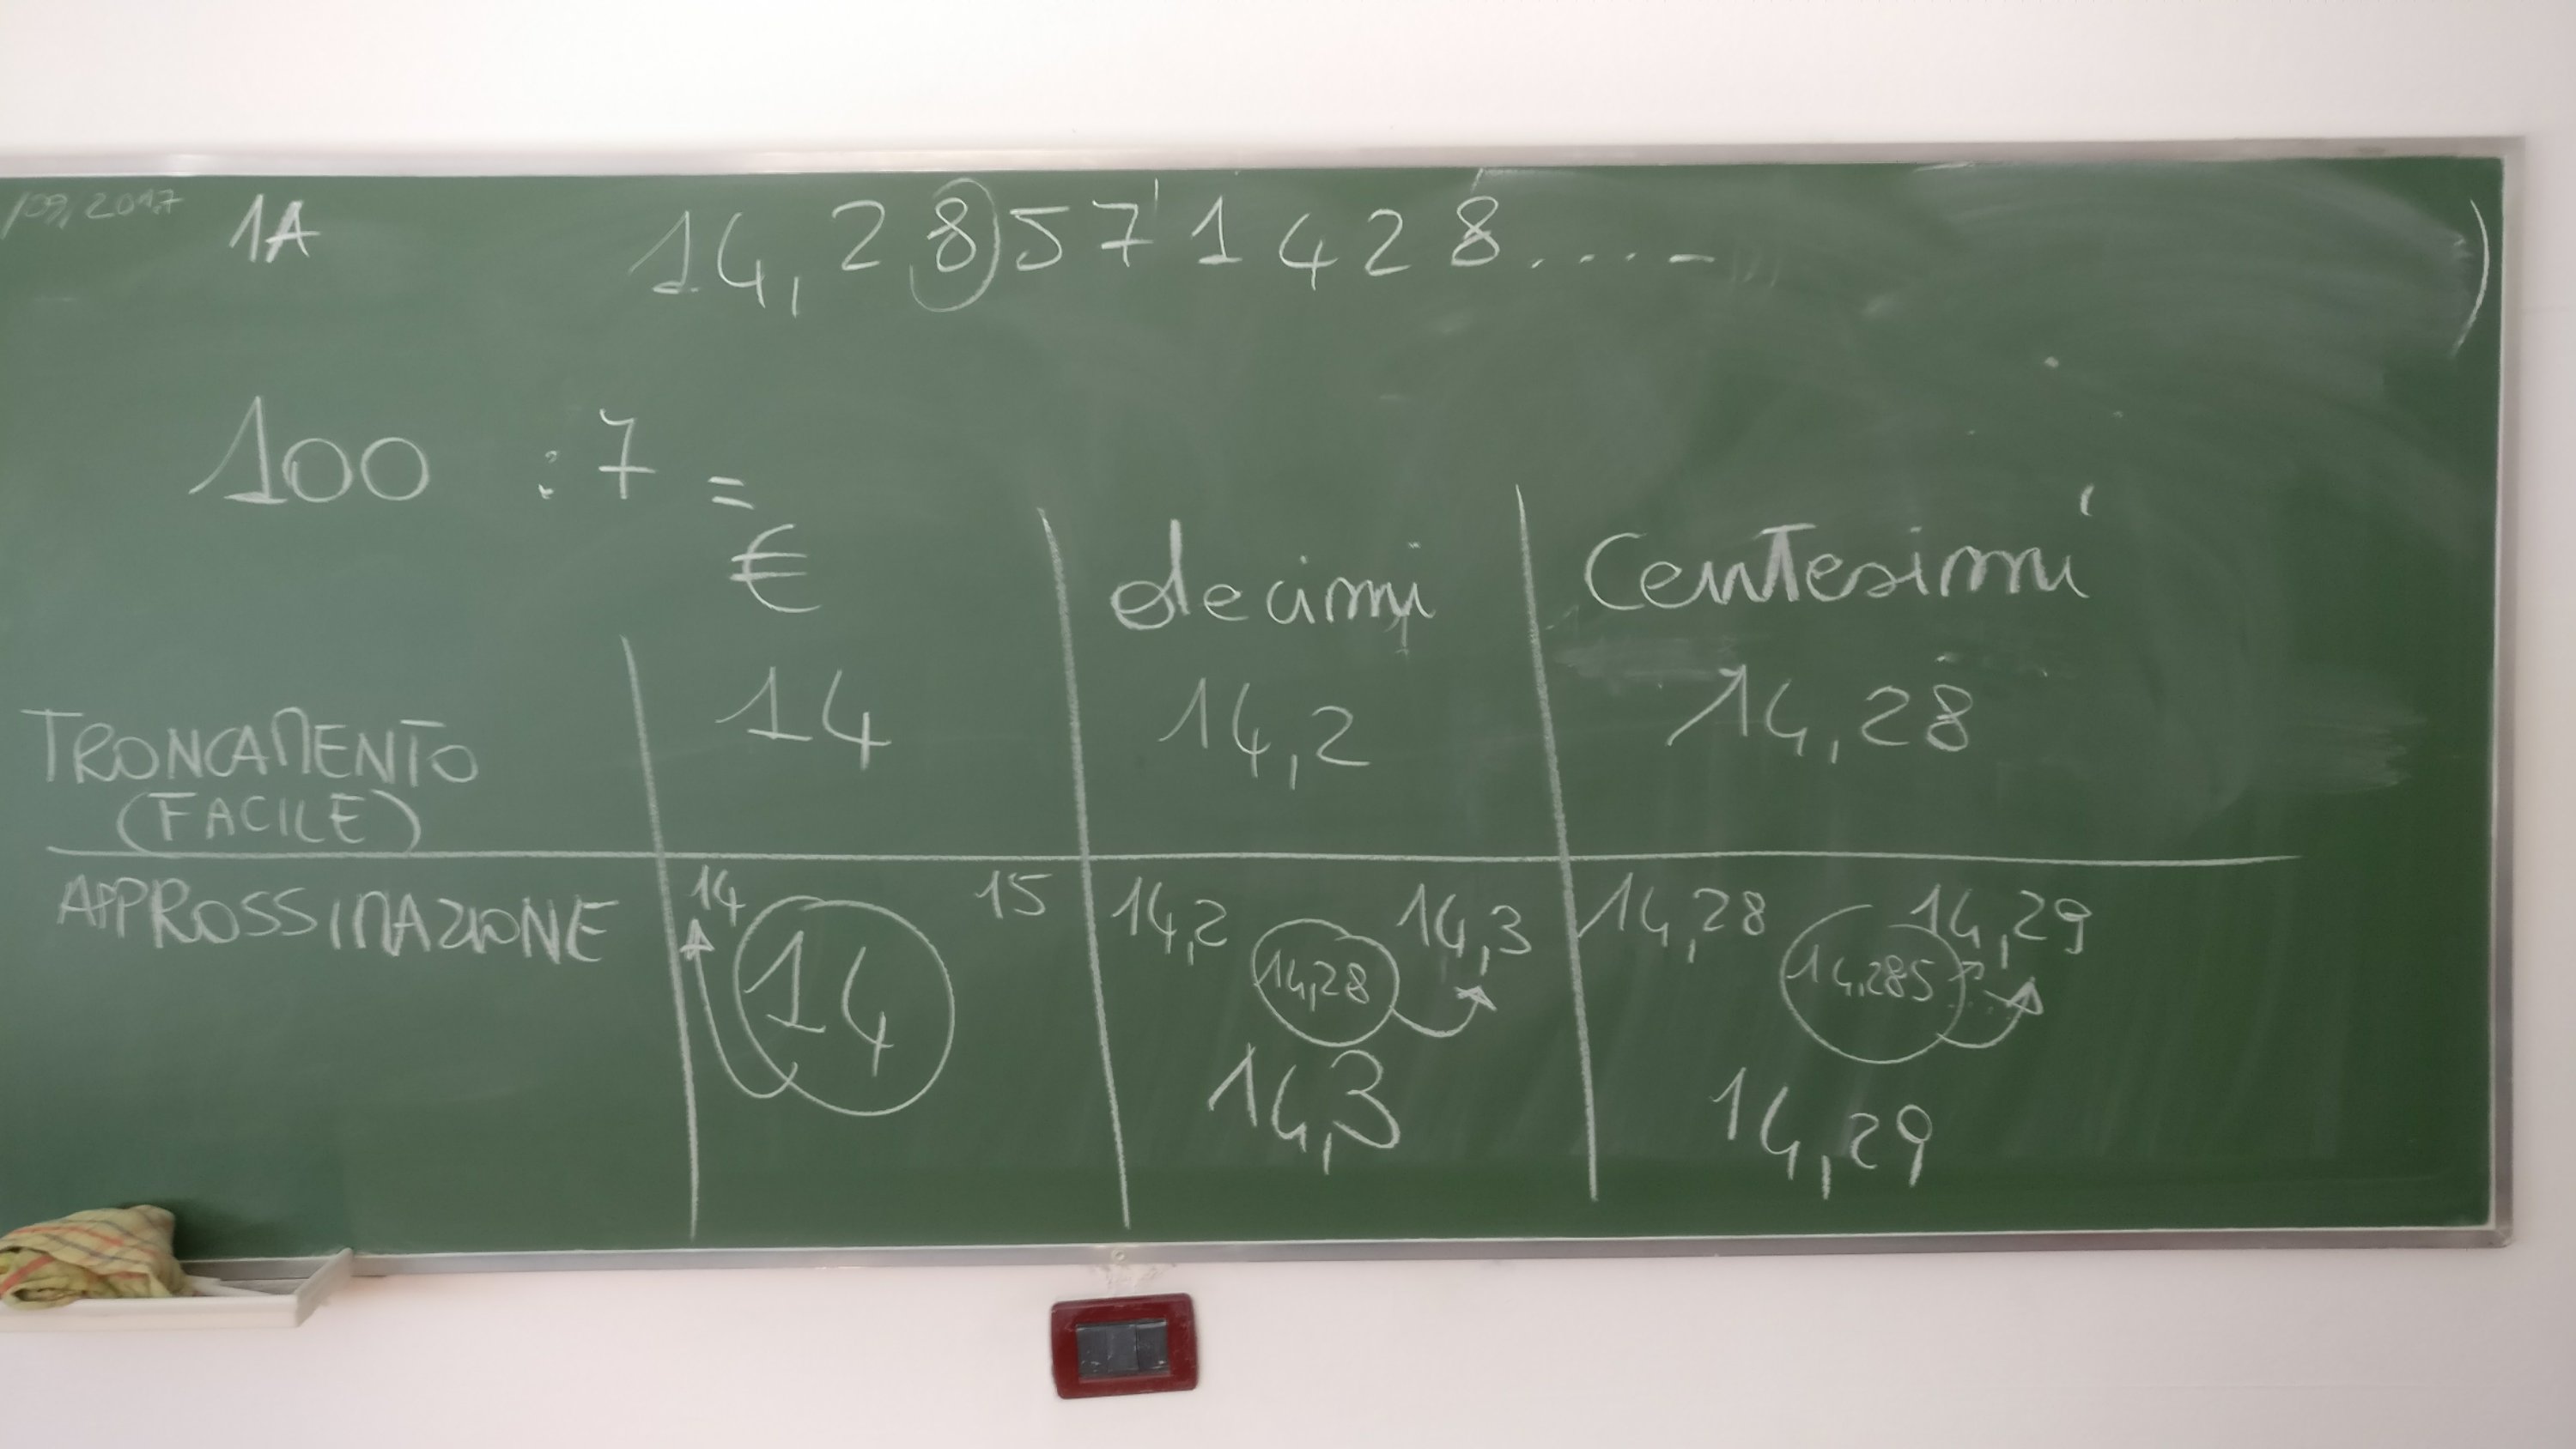 /09,2017 1A 14,28571428....-
100 :7 =
€ decimi Centesimi
TRONCAMENTO 14 14,2 14,28
(FACILE)
APPROSSIMAZIONE 14 15 14,2 14,3 14,28 14,29
14 14,28 14,285
14,3 14,29